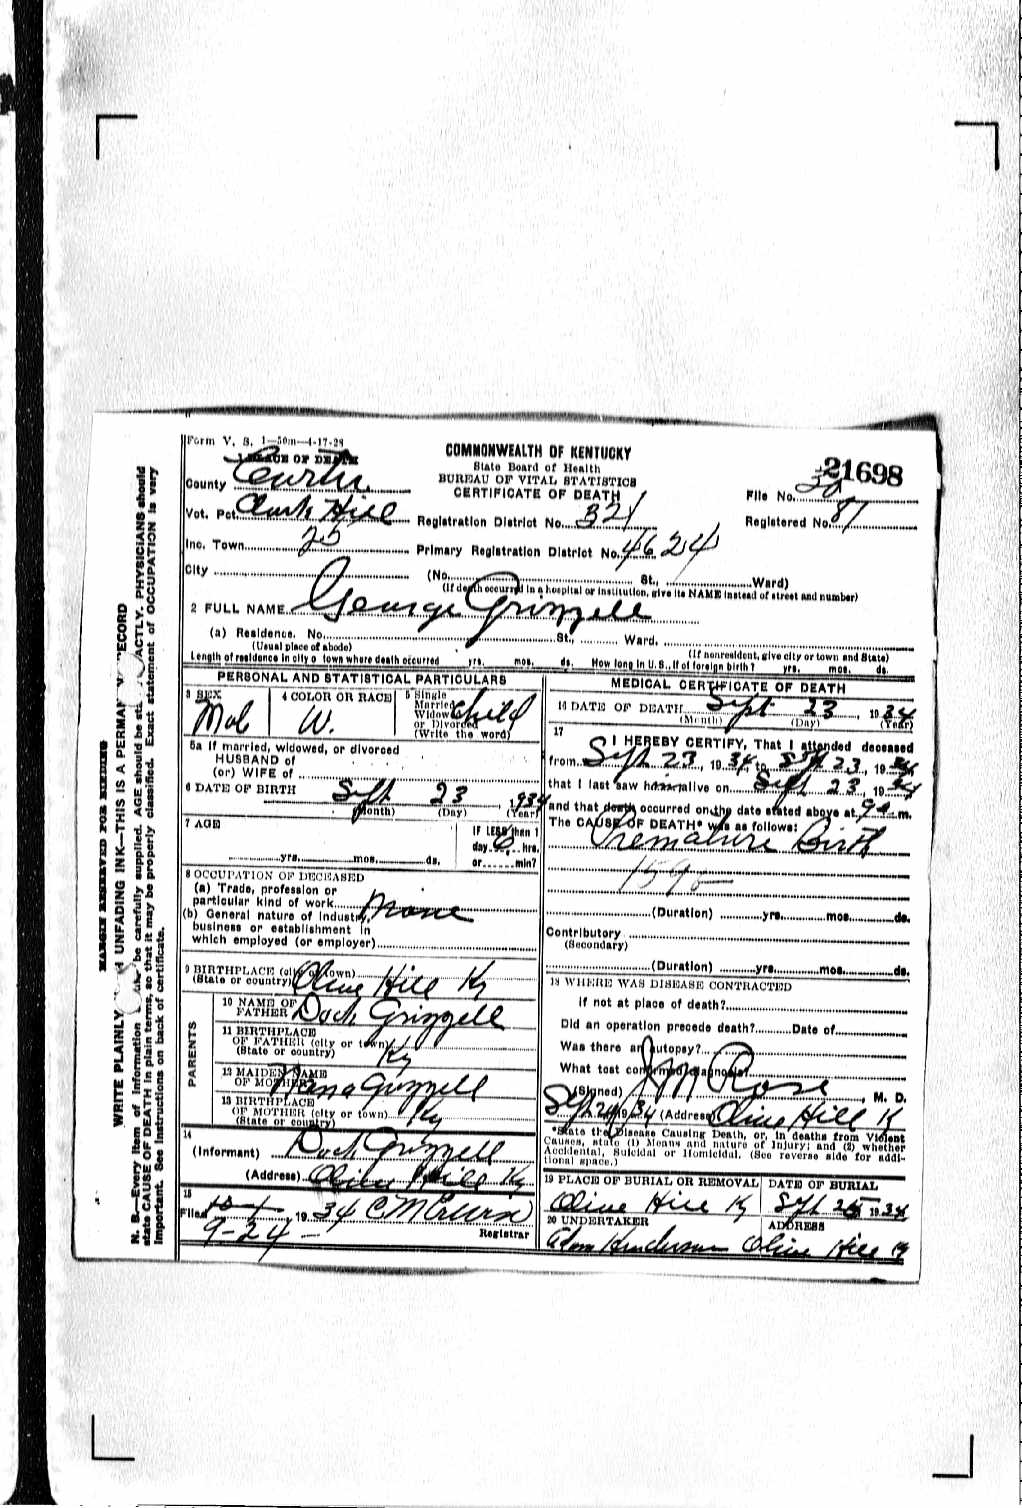 Form V. S. 1—50m—4-17-28
1 PLACE OF DEATH
County Carter.
Vot. Pct. Clark Hill
Inc. Town 25
City
COMMONWEALTH OF KENTUCKY
State Board of Health
BUREAU OF VITAL STATISTICS
CERTIFICATE OF DEATH
Registration District No. 321
Primary Registration District No. 4624
(No. St., Ward)
(If death occurred in a hospital or institution, give its NAME instead of street and number)
21698
File No.
Registered No. 87
2 FULL NAME George Grizzell
(a) Residence. No. St., Ward.
(Usual place of abode) (If nonresident, give city or town and State)
Length of residence in city o town where death occurred yrs. mos. ds. How long in U. S., if of foreign birth? yrs. mos. ds.
PERSONAL AND STATISTICAL PARTICULARS
3 SEX Mal
4 COLOR OR RACE W.
5 Single Married Widowed or Divorced (Write the word) Child
5a If married, widowed, or divorced
HUSBAND of
(or) WIFE of
6 DATE OF BIRTH Sept 23, 1934
(Month) (Day) (Year)
7 AGE
yrs. mos. ds.
IF LESS than 1
day 6 hrs.
or min?
8 OCCUPATION OF DECEASED
(a) Trade, profession or
particular kind of work None
(b) General nature of industry,
business or establishment in
which employed (or employer)
9 BIRTHPLACE (city or town)
(State or country) Olive Hill Ky
PARENTS
10 NAME OF
FATHER Dock Grizzell
11 BIRTHPLACE
OF FATHER (city or town)
(State or country) Ky
12 MAIDEN NAME
OF MOTHER Nana Grizzell
13 BIRTHPLACE
OF MOTHER (city or town)
(State or country) Ky
14
(Informant) Dock Grizzell
(Address) Olive Hill Ky
15
Filed 10-1 1934
9-24-
Registrar
MEDICAL CERTIFICATE OF DEATH
16 DATE OF DEATH Sept 23, 1934
(Month) (Day) (Year)
17
I HEREBY CERTIFY, That I attended deceased
from Sept 23, 1934, to Sept 23, 1934
that I last saw him alive on Sept 23, 1934
and that death occurred on the date stated above at 9 a. m.
The CAUSE OF DEATH* was as follows:
Premature Birth
159
(Duration) yrs. mos. ds.
Contributory
(Secondary)
(Duration) yrs. mos. ds.
18 WHERE WAS DISEASE CONTRACTED
if not at place of death?
Did an operation precede death? Date of
Was there an autopsy?
What test confirmed diagnosis?
(Signed) J M Rose, M. D.
Sept 24 1934 (Address) Olive Hill K
*State the Disease Causing Death, or, in deaths from Violent
Causes, state (1) Means and nature of Injury; and (2) whether
Accidental, Suicidal or Homicidal. (See reverse side for addi-
tional space.)
19 PLACE OF BURIAL OR REMOVAL Olive Hill Ky
DATE OF BURIAL Sept 25 1934
20 UNDERTAKER Adam Henderson
ADDRESS Olive Hill Ky
MARGIN RESERVED FOR BINDING
WRITE PLAINLY UNFADING INK—THIS IS A PERMAN ECORD
N. B.—Every item of information be carefully supplied. AGE should be st ACTLY. PHYSICIANS should
state CAUSE OF DEATH in plain terms, so that it may be properly classified. Exact statement of OCCUPATION is very
important. See instructions on back of certificate.